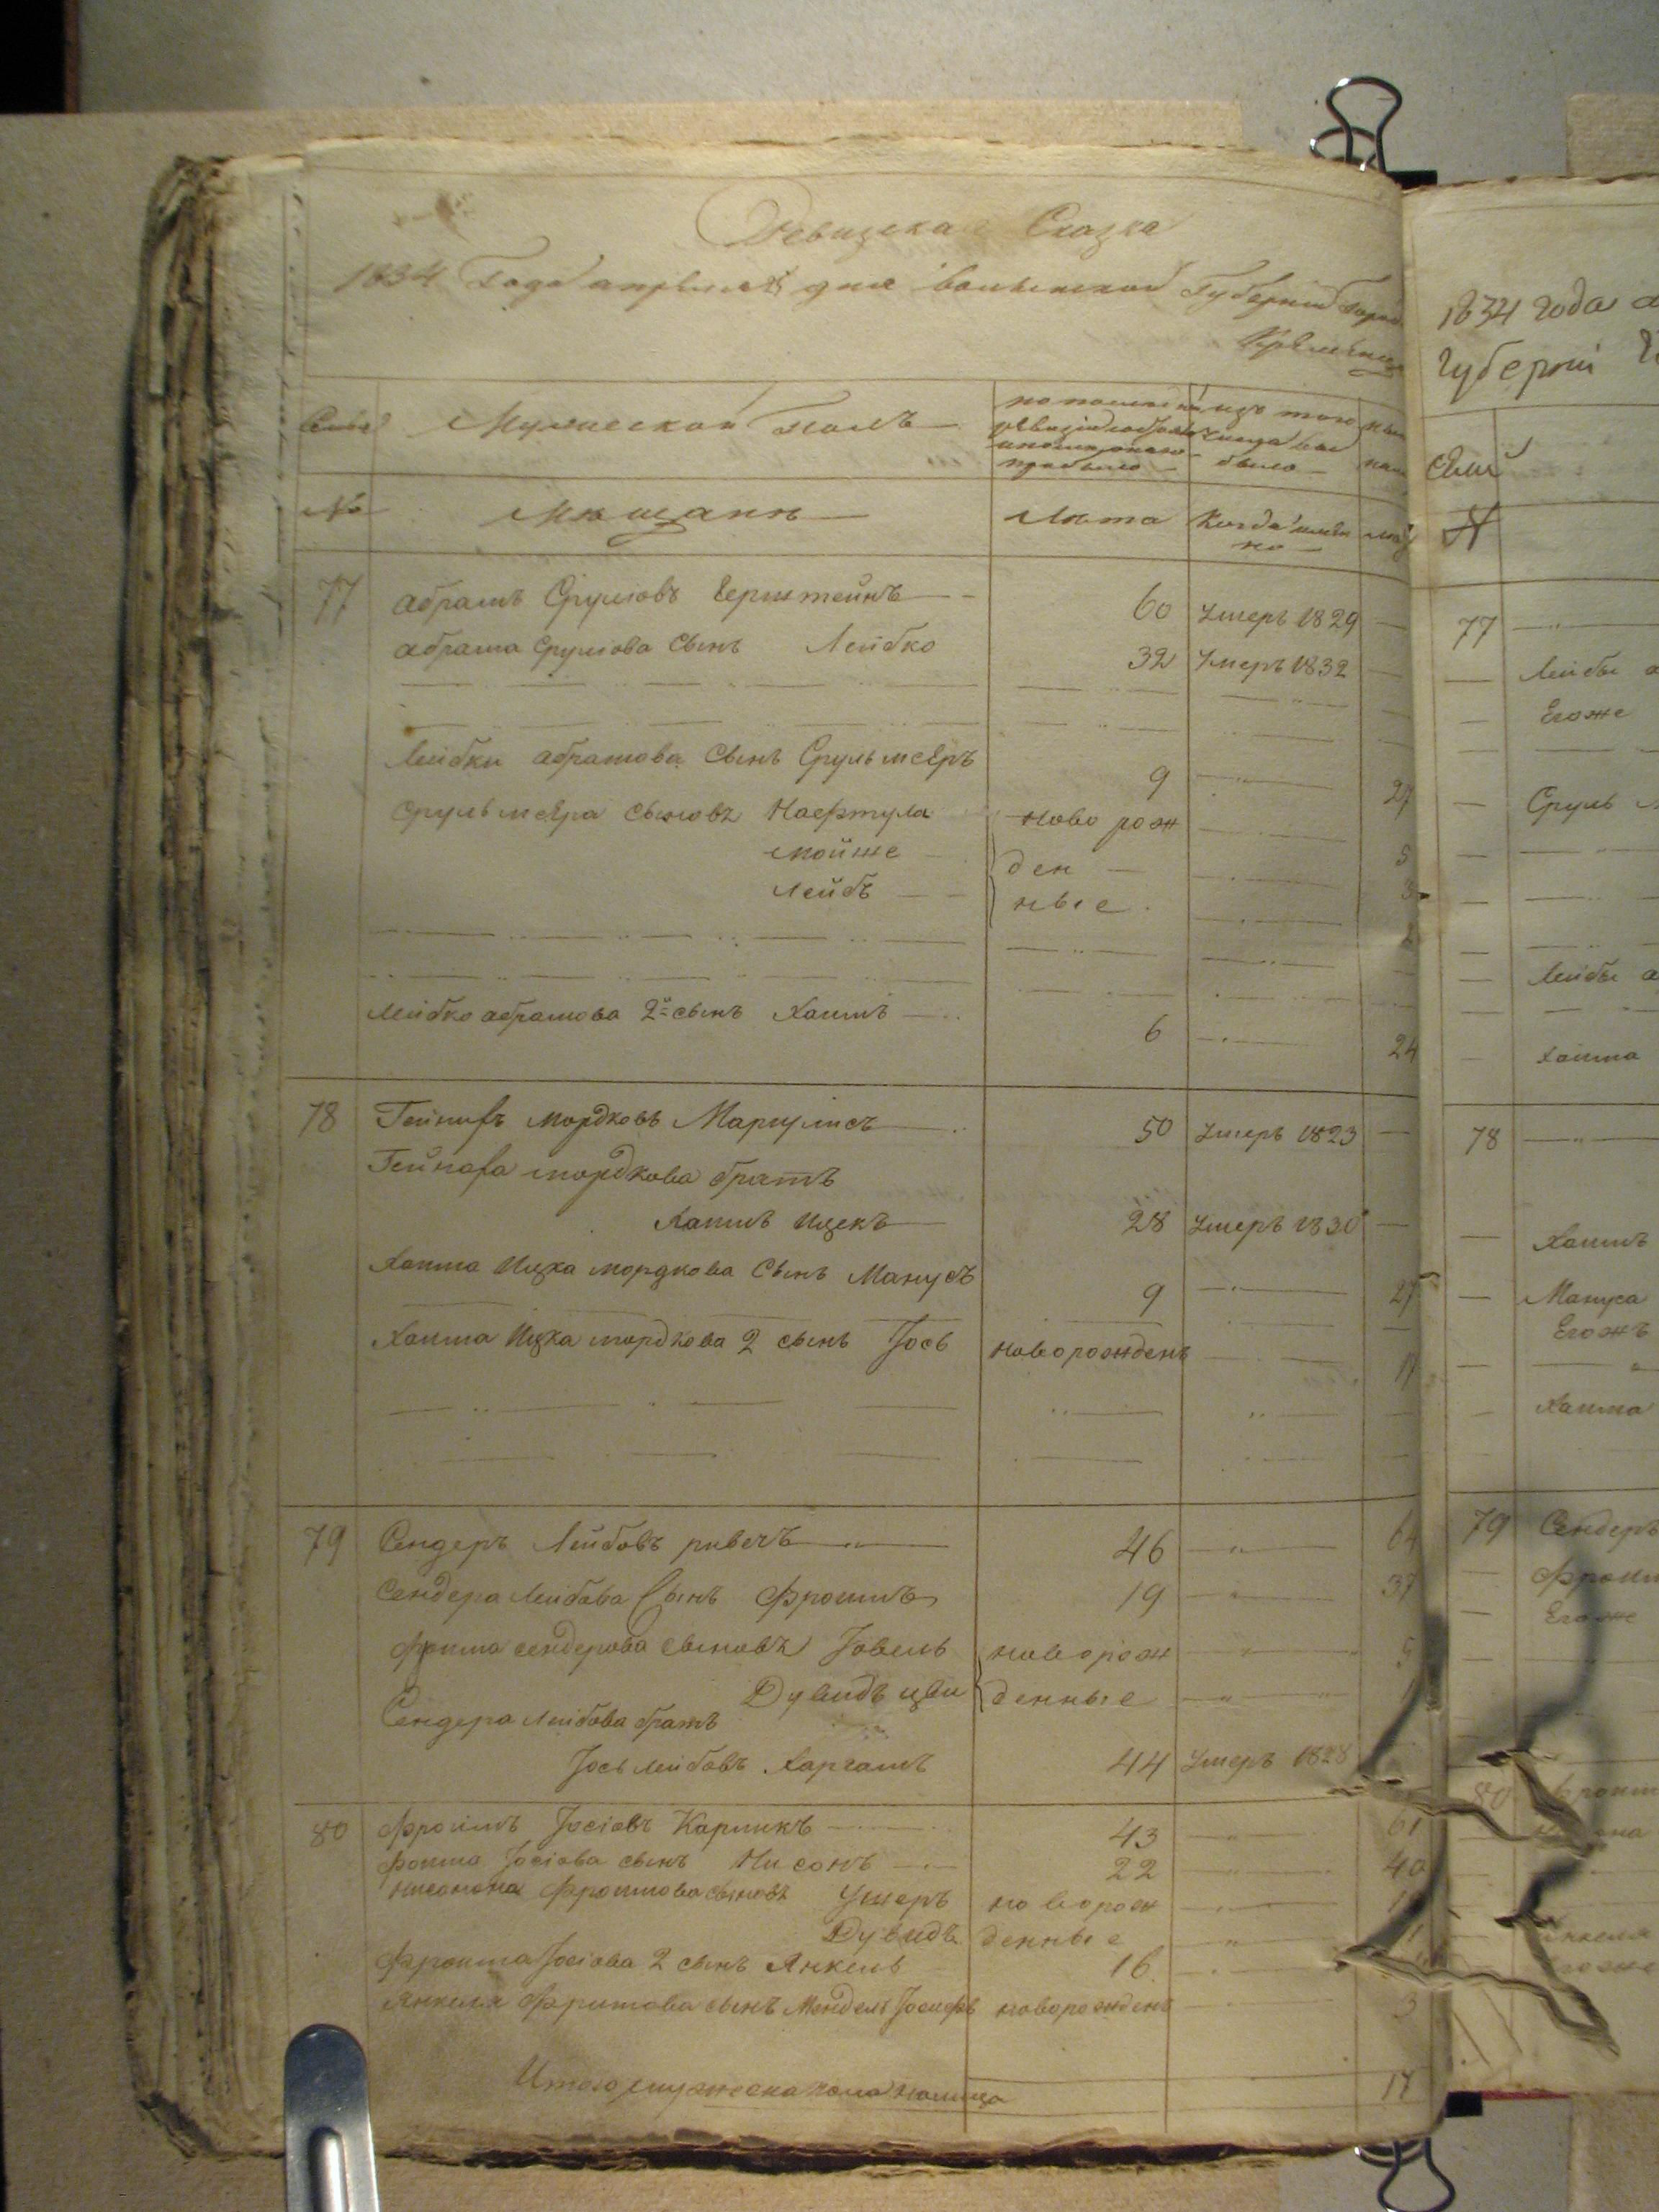 Ревизская Сказка
1834 Года апреля дня волынской Губернии Город
Кременца
Семьи Мужеской полъ по последней ревизіи состояло и после оной прибыло изъ того числа выбыло
№ Мѣщане Лѣта Когда именно
77 Абрамъ Сруліовъ Герштейнъ 60 Умеръ 1829
Абрама Сруліова Сынъ Лейбко 32 Умеръ 1832
Лейбки Абрамова Сынъ Сруль меръ 9 27
Сруль мера Сыновъ Нафтула Ново рож 5
Мойше ден 3
Лейбъ ные
Лейбко абрамова 2й сынъ Хаимъ 6 24
78 Мордковъ Маргулисъ 50 Умеръ 1823
мордкова братъ
Хаимъ Ицекъ 28 Умеръ 1830
Хаима Ицка мордкова Сынъ Манусъ 9 27
Хаима Ицка мордкова 2 сынъ Іось новорожденъ
79 Сендеръ Лейбовъ 46 64
Сендера Лейбова Сынъ Фроимъ 19 37
Фроима сендерова сыновъ Іовель новорож 5
Дувидъ цви денные
Сендера Лейбова братъ
Іось Лейбовъ 44 Умеръ 1828
80 Фроимъ Іосіовъ 43 61
Фоима Іосіова сынъ Нисонъ 22 40
Нисонона Фроимова сыновъ Ушеръ новорож
Дувидъ денные
Фроима Іосіова 2 сынъ Янкель 16
Янкеля Фримова сынъ Мендель Іосифъ новорожденъ 3
Итого мужеска пола налицо 17
1834 года
Губерніи
Семьи
№
77
Лейбы
Егоже
Сруль
Лейбы
Хаима
78
Хаимъ
Мануса
Егожъ
Хаима
79 Сендеръ
Фроим
Егоже
80